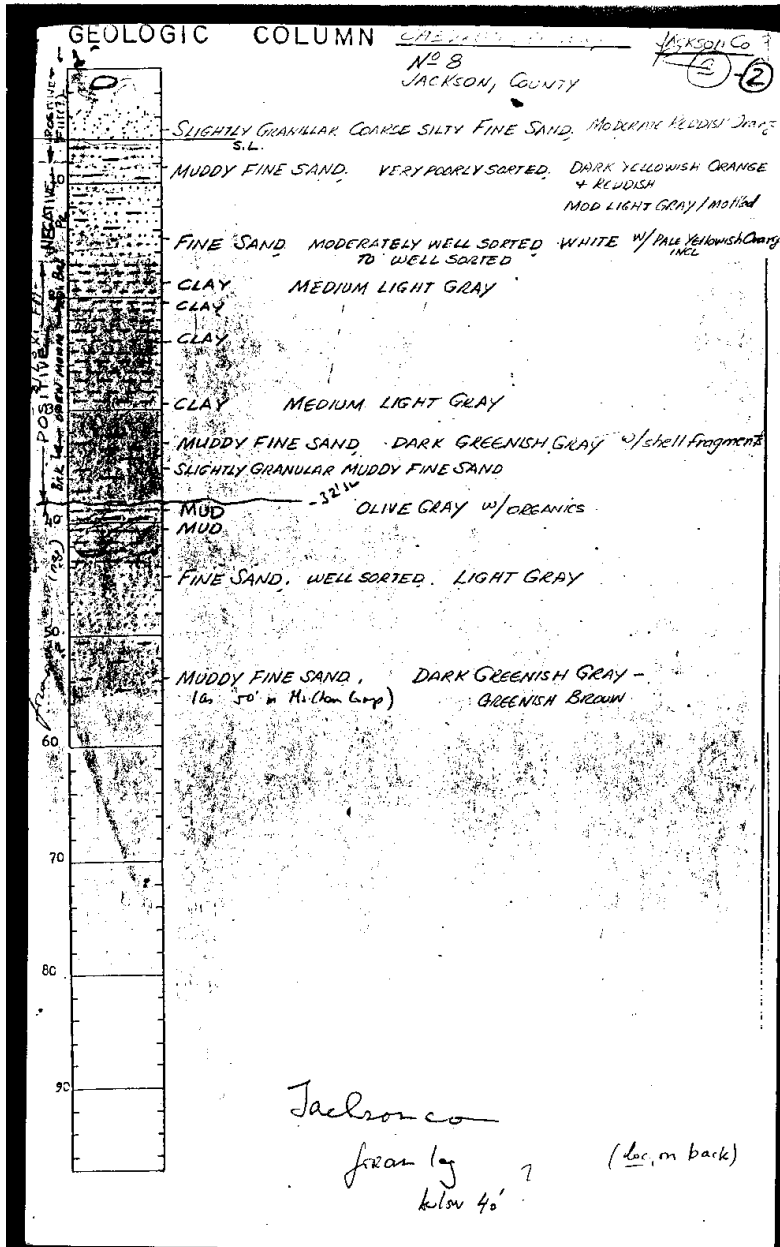 GEOLOGIC COLUMN
JACKSON CO ?
Nº 8
2
JACKSON, COUNTY
SLIGHTLY GRANULAR COARSE SILTY FINE SAND. MODERATE REDDISH Orang
S.L.
MUDDY FINE SAND. VERY POORLY SORTED. DARK YELLOWISH ORANGE
+ REDDISH
MOD LIGHT GRAY / mottled
FINE SAND MODERATELY WELL SORTED WHITE W/ PALE Yellowish Orang
TO WELL SORTED INCL
CLAY MEDIUM LIGHT GRAY
CLAY
CLAY
CLAY MEDIUM LIGHT GRAY
MUDDY FINE SAND DARK GREENISH GRAY w/ shell fragments
SLIGHTLY GRANULAR MUDDY FINE SAND
-32' SL
MUD OLIVE GRAY W/ ORGANICS
MUD
40
FINE SAND. WELL SORTED. LIGHT GRAY
50
MUDDY FINE SAND. DARK GREENISH GRAY -
GREENISH BROWN
60
70
80
90
Jackson co
foram log ?
below 40'
(loc. on back)
POSITIVE
NEGATIVE
POSITIVE